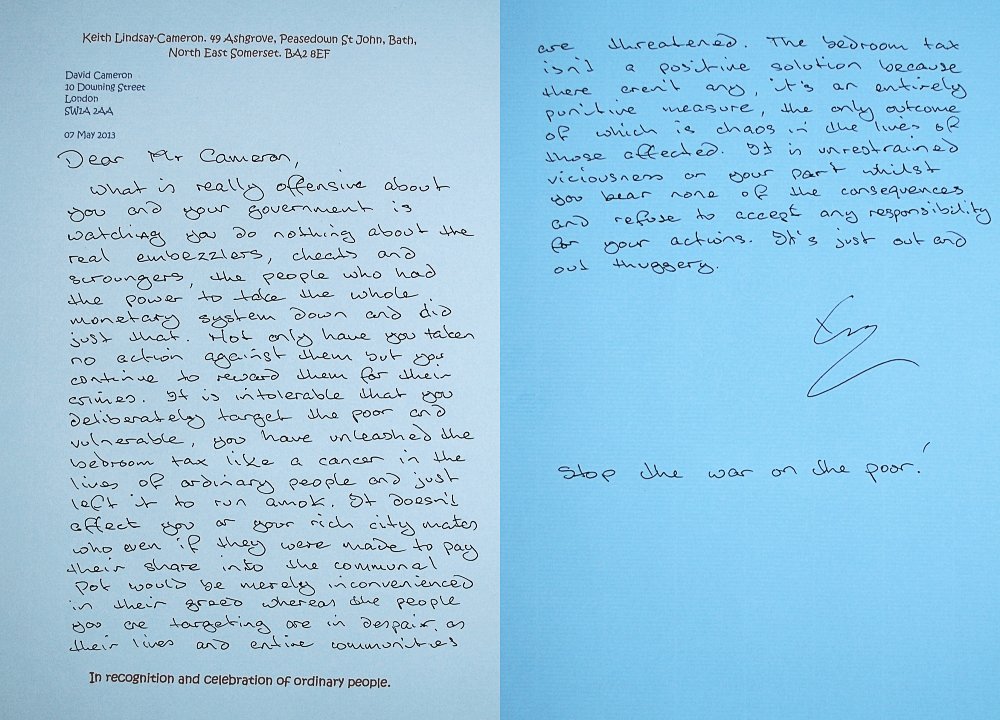 Keith Lindsay-Cameron. 49 Ashgrove, Peasedown St John, Bath,
North East Somerset. BA2 8EF
David Cameron
10 Downing Street
London
SW1A 2AA
07 May 2013
Dear Mr Cameron,
What is really offensive about
you and your government is
watching you do nothing about the
real embezzlers, cheats and
scroungers, the people who had
the power to take the whole
monetary system down and did
just that. Not only have you taken
no action against them but you
continue to reward them for their
crimes. It is intolerable that you
deliberately target the poor and
vulnerable, you have unleashed the
bedroom tax like a cancer in the
lives of ordinary people and just
left it to run amok. It doesn't
affect you or your rich city mates
who even if they were made to pay
their share into the communal
pot would be merely inconvenienced
in their greed whereas the people
you are targeting are in despair as
their lives and entire communities
In recognition and celebration of ordinary people.
are threatened. The bedroom tax
isn't a positive solution because
there aren't any, it's an entirely
punitive measure, the only outcome
of which is chaos in the lives of
those affected. It is unrestrained
viciousness on your part whilst
you bear none of the consequences
and refuse to accept any responsibility
for your actions. It's just out and
out thuggery.
Stop the war on the poor!